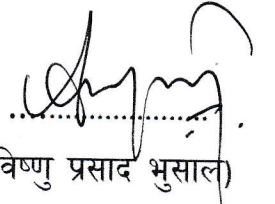 विष्णु प्रसाद भुसाल)